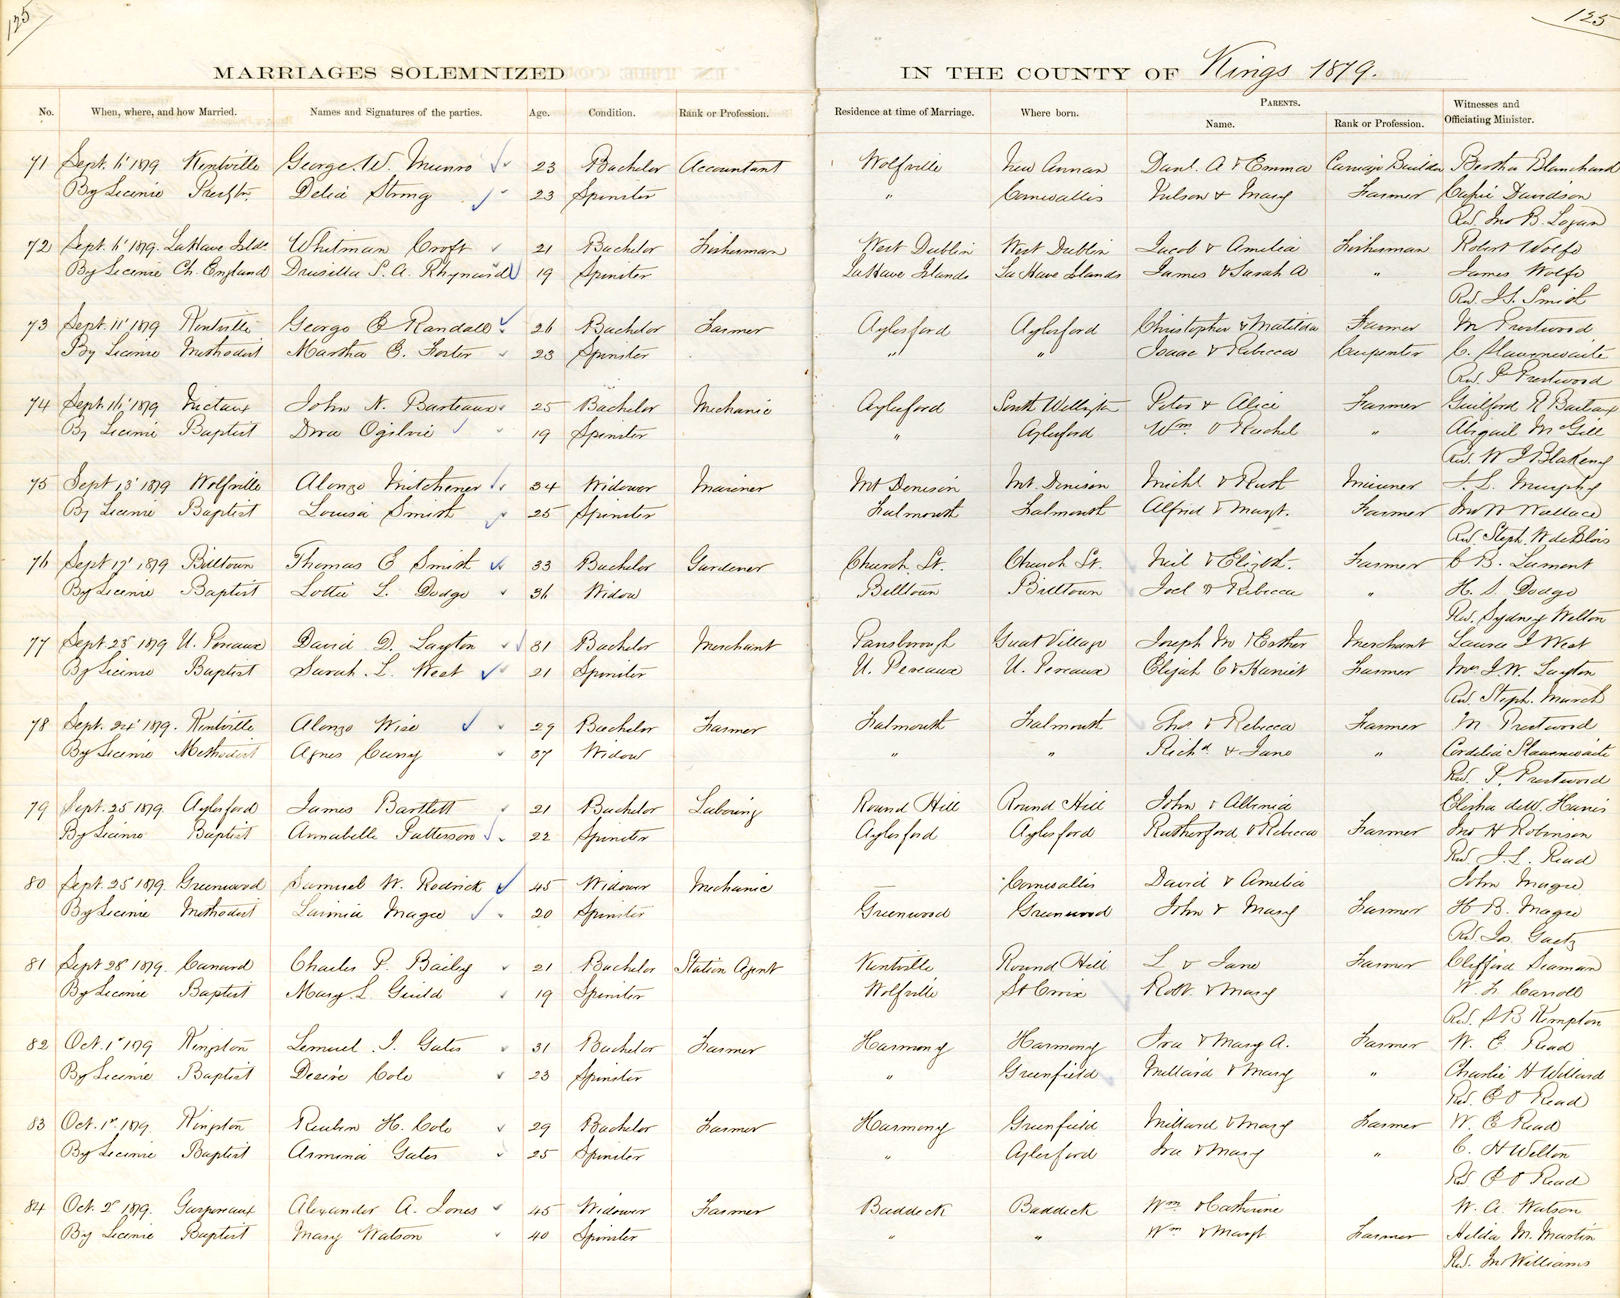 125
125
MARRIAGES SOLEMNIZED IN THE COUNTY OF Kings 1879.
No. When, where, and how Married. Names and Signatures of the parties. Age. Condition. Rank or Profession. Residence at time of Marriage. Where born. PARENTS. Name. Rank or Profession. Witnesses and Officiating Minister.
71 Sept. 1879 Kentville George W. Munro 23 Bachelor Accountant Wolfville New Annan Danl. A & Emma Carriage Builder Bertha Blanchard
By Licence Presbtn. Delia Strong 23 Spinster " Cornwallis Nelson & Mary Farmer Davidson
Rev. Jno B. Logan
72 Sept. 1879. LaHave Islds Whitman Croft 21 Bachelor Fisherman West Dublin West Dublin Jacob & Amelia Fisherman Robert Wolfe
By Licence Ch. England Drusilla S. A. Rhynard 19 Spinster LaHave Islands La Have Islands James & Sarah A " James Wolfe
Rev. Smith
73 Sept. 11' 1879 Kentville George E Randall 26 Bachelor Farmer Aylesford Aylesford Christopher & Matilda Farmer M Prestwood
By Licence Methodist Martha E. Foster 23 Spinster " " Isaac & Rebecca Carpenter C. Slauenwaite
Rev. P Prestwood
74 Sept. 1879 Nictaux John N. Barteaux 25 Bachelor Mechanic Aylesford South Wellington Peter & Alice Farmer Guilford R Barteaux
By Licence Baptist Dora Ogilvie 19 Spinster " Aylesford Wm. & Rachel " Abigail McGill
Rev. W J Blakeny
75 Sept 13' 1879 Wolfville Alonzo Mitchener 34 Widower Mariner Mt Denison Mt. Denison Michl & Ruth Mariner J. L. Murphy
By Licence Baptist Louisa Smith 25 Spinster Falmouth Falmouth Alfred & Margt. Farmer Jno W Wallace
Rev. Steph. W deBlois
76 Sept 17' 1879 Billtown Thomas E Smith 33 Bachelor Gardener Church St. Church St. Neil & Elizbth. Farmer C B. Lamont
By Licence Baptist Lottie L. Dodge 36 Widow Billtown Billtown Joel & Rebecca " H. S. Dodge
Rev. Sydney Welton
77 Sept. 23' 1879 U. Pereaux David D. Layton 31 Bachelor Merchant Parrsborough Great Village Joseph M & Esther Merchant Laura J West
By Licence Baptist Sarah. L. West 21 Spinster U. Pereaux U. Pereaux Elijah C & Harriet Farmer Mrs J. W. Layton
Rev. Steph. March
78 Sept. 24' 1879. Kentville Alonzo Wise 29 Bachelor Farmer Falmouth Falmouth Thos & Rebecca Farmer M Prestwood
By Licence Methodist Agnes Curry 37 Widow " " Richd & Jane " Cordelia Slauenwaite
Rev. P. Prestwood
79 Sept. 25 1879. Aylesford James Bartlett 21 Bachelor Laboring Round Hill Round Hill John & Albinia Elisha deW. Harris
By Licence Baptist Annabelle Patterson 22 Spinster Aylesford Aylesford Rutherford & Rebecca Farmer Jno H Robinson
Rev. J. L. Read
80 Sept. 25 1879. Greenwood Samuel W. Rodrick 45 Widower Mechanic Cornwallis David & Amelia John Magee
By Licence Methodist Lavinia Magee 20 Spinster Greenwood Greenwood John & Mary Farmer H B. Magee
Rev. Jos. Gaetz
81 Sept 28' 1879. Canard Charles P. Bailey 21 Bachelor Station Agent Kentville Round Hill L & Jane Farmer Clifford Seaman
By Licence Baptist Mary L Guild 19 Spinster Wolfville St Croix Robt. & Mary W. L. Carroll
Rev. S B Kempton
82 Oct. 1' 1879 Kingston Lemuel I. Gates 31 Bachelor Farmer Harmony Harmony Ira & Mary A. Farmer W. E Read
By Licence Baptist Desire Cole 23 Spinster " Greenfield Millard & Mary " Charlie H Willard
Rev. E O Read
83 Oct. 1st 1879. Kingston Reuben H. Cole 29 Bachelor Farmer Harmony Greenfield Millard & Mary Farmer W. E Read
By Licence Baptist Armina Gates 25 Spinster " Aylesford Ira & Mary " C. H Welton
Rev E O Read
84 Oct. 2d 1879. Gaspereaux Alexander A. Jones 45 Widower Farmer Baddeck Baddeck Wm & Catherine W. A. Watson
By Licence Baptist Mary Watson 40 Spinster " " Wm & Margt Farmer Hilda M. Martin
Rev. Jno Williams